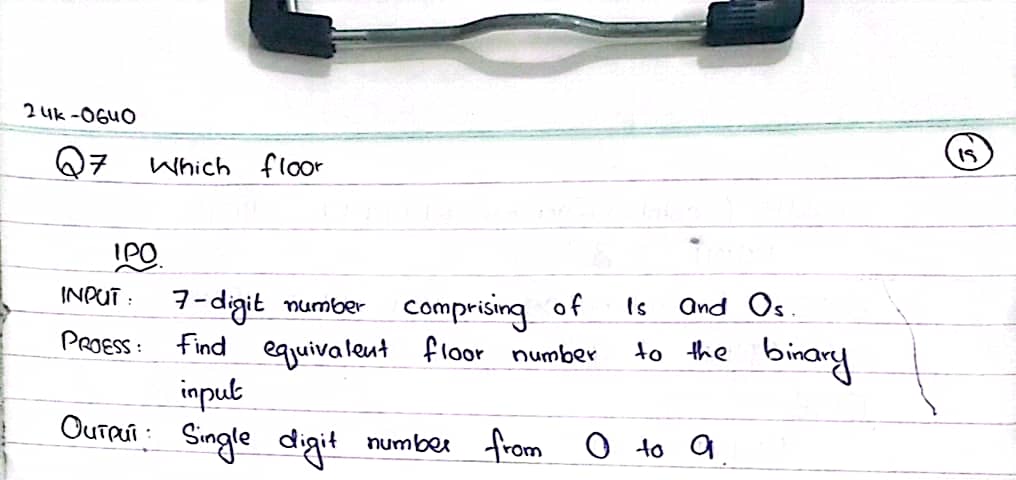 24k-0640
Q7 Which floor
19
IPO.
INPUT: 7-digit number comprising of 1s and 0s.
PROESS: Find equivalent floor number to the binary
input
OUTPUT: Single digit number from 0 to 9.